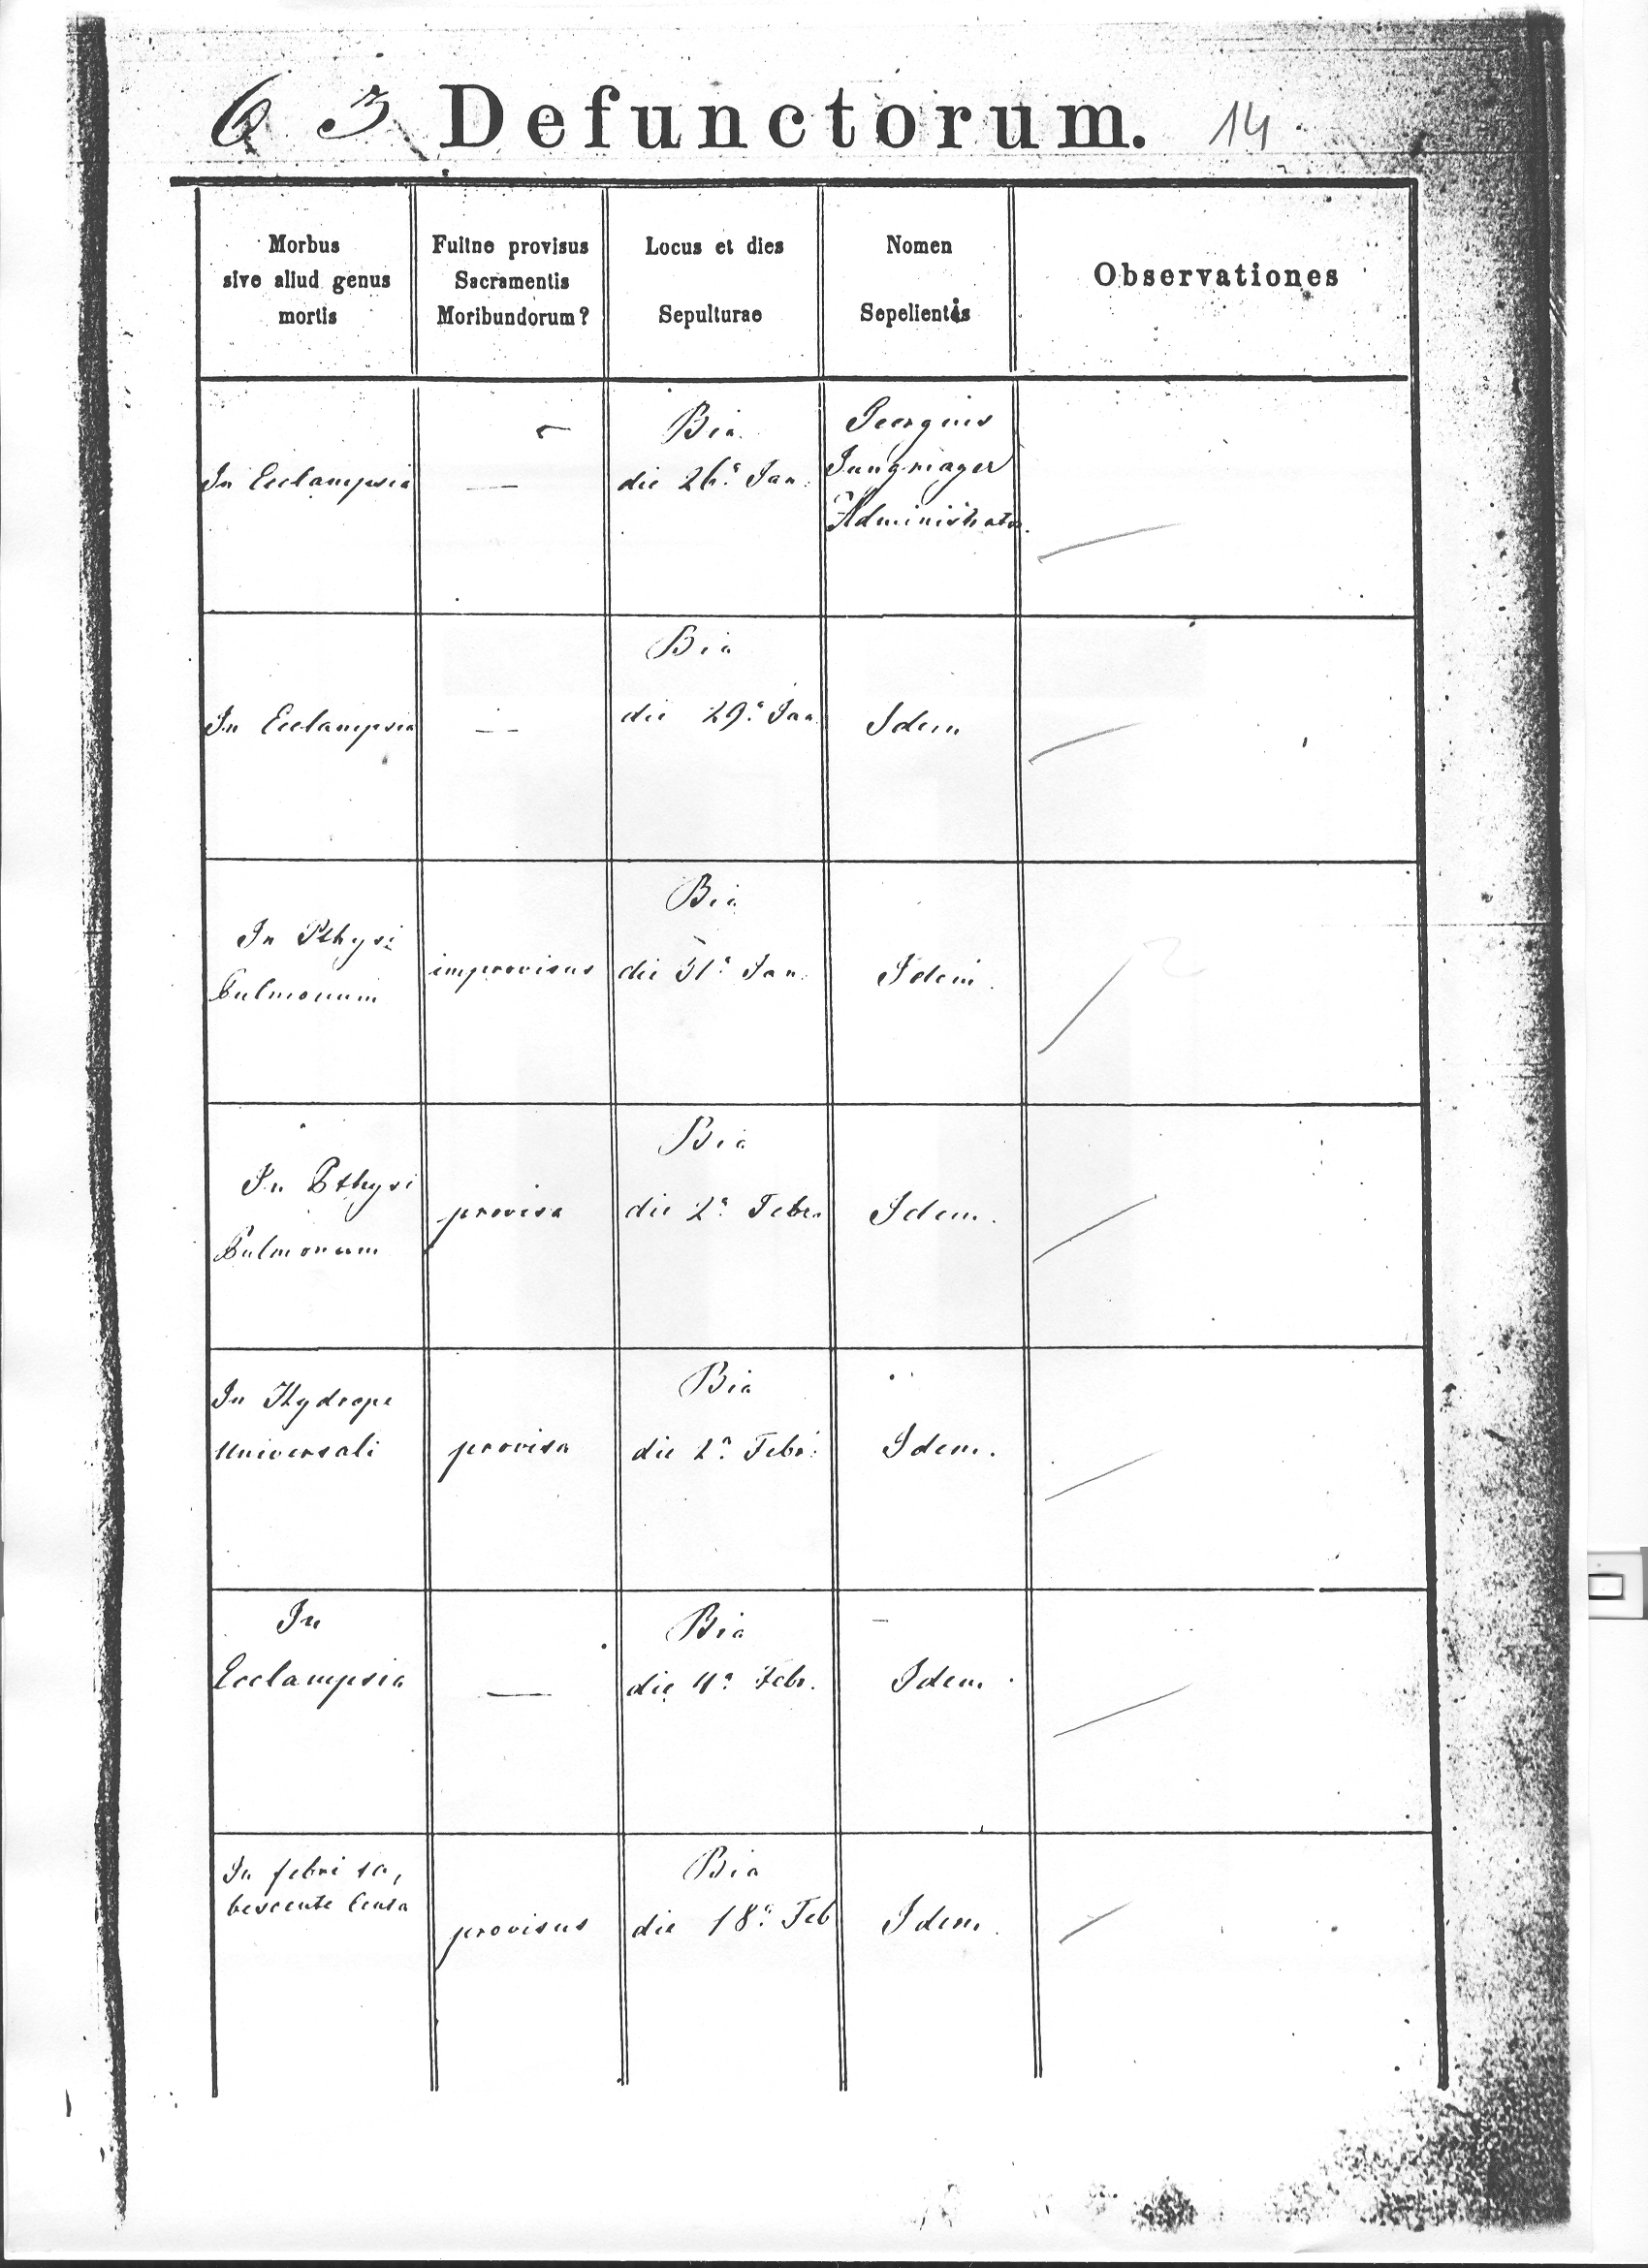 6 3 Defunctorum. 14
Morbus
sive aliud genus
mortis
Fuitne provisus
Sacramentis
Moribundorum?
Locus et dies
Sepulturae
Nomen
Sepelientis
Observationes
In Ecclampsia
—
Bia
die 26ª Jan.
Georgius
Jungmayer
Administrator.
In Ecclampsia
—
Bia
die 29ª Jan.
Idem
In Pthysi
Pulmonum
improvisus
Bia
die 31ª Jan.
Idem.
In Pthysi
Pulmonum
provisa
Bia
die 2ª Febr.
Idem.
In Hydrope
Universali
provisa
Bia
die 2ª Febr.
Idem.
In
Ecclampsia
—
Bia
die 4ª Febr.
Idem.
In febri ta,
bescente lenta
provisus
Bia
die 18ª Feb
Idem.